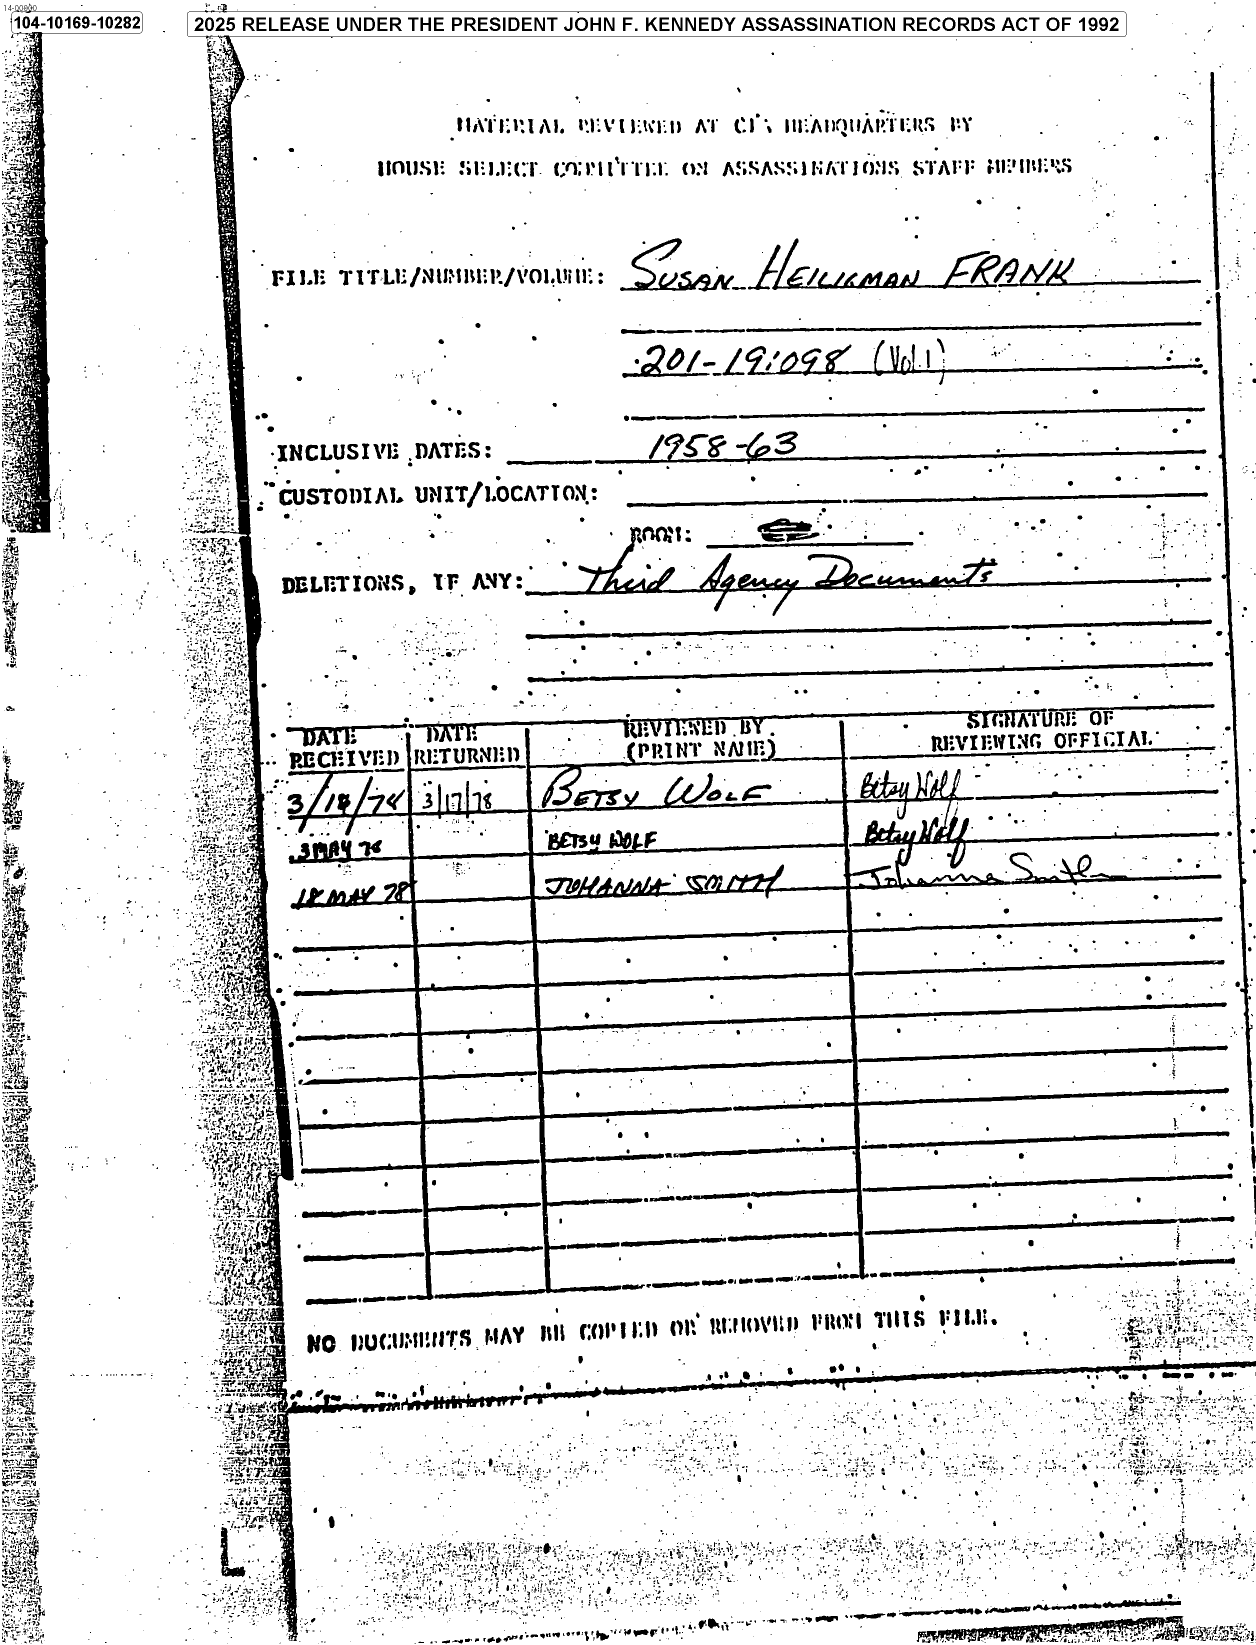 14-00000
104-10169-10282
2025 RELEASE UNDER THE PRESIDENT JOHN F. KENNEDY ASSASSINATION RECORDS ACT OF 1992
MATERIAL REVIEWED AT CIA HEADQUARTERS BY
HOUSE SELECT COMMITTEE ON ASSASSINATIONS STAFF MEMBERS
FILE TITLE/NUMBER/VOLUME: SUSAN HEILIGMAN FRANK
201-191098 (Vol. 1)
INCLUSIVE DATES: 1958-63
CUSTODIAL UNIT/LOCATION:
ROOM:
DELETIONS, IF ANY: Third Agency Documents
DATE RECEIVED DATE RETURNED REVIEWED BY (PRINT NAME) SIGNATURE OF REVIEWING OFFICIAL
3/ /78 3/17/78 BETSY WOLF Betsy Wolf
3 MAY 78 BETSY WOLF Betsy Wolf
18 MAY 78 JOHANNA SMITH Johanna Smith
NO DOCUMENTS MAY BE COPIED OR REMOVED FROM THIS FILE.